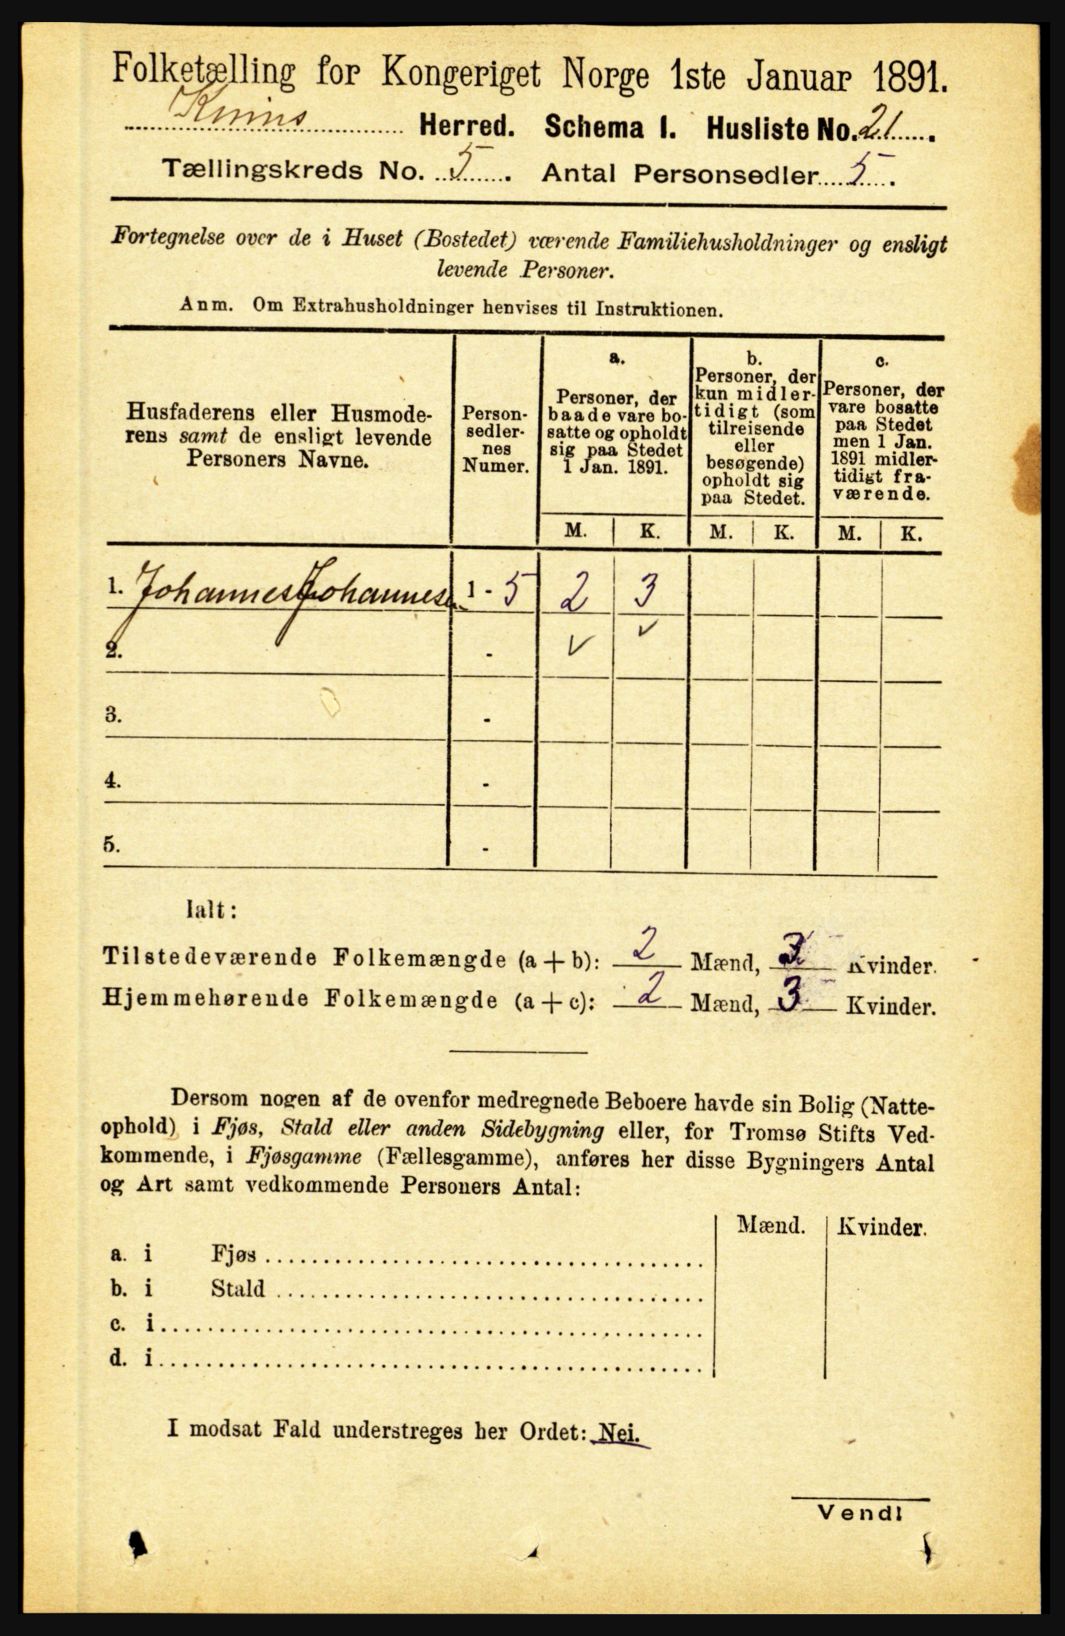 Folketælling for Kongeriget Norge 1ste Januar 1891.
Kinns Herred. Schema I. Husliste No. 21.
Tællingskreds No. 5. Antal Personsedler 5.
Fortegnelse over de i Huset (Bostedet) værende Familiehusholdninger og ensligt
levende Personer.
Anm. Om Extrahusholdninger henvises til Instruktionen.
Husfaderens eller Husmode-
rens samt de ensligt levende
Personers Navne.
Person-
sedler-
nes
Numer.
a.
Personer, der
baade vare bo-
satte og opholdt
sig paa Stedet
1 Jan. 1891.
b.
Personer, der
kun midler-
tidigt (som
tilreisende
eller
besøgende)
opholdt sig
paa Stedet.
c.
Personer, der
vare bosatte
paa Stedet
men 1 Jan.
1891 midler-
tidigt fra-
værende.
M. K. M. K. M. K.
1. Johannes Johannesen 1 - 5 2 3
2. - ✓ ✓
3. -
4. -
5. -
Ialt:
Tilstedeværende Folkemængde (a + b): 2 Mænd, 3 Kvinder.
Hjemmehørende Folkemængde (a + c): 2 Mænd, 3 Kvinder.
Dersom nogen af de ovenfor medregnede Beboere havde sin Bolig (Natte-
ophold) i Fjøs, Stald eller anden Sidebygning eller, for Tromsø Stifts Ved-
kommende, i Fjøsgamme (Fællesgamme), anføres her disse Bygningers Antal
og Art samt vedkommende Personers Antal:
Mænd. Kvinder.
a. i Fjøs
b. i Stald
c. i
d. i
I modsat Fald understreges her Ordet: Nei.
Vend!